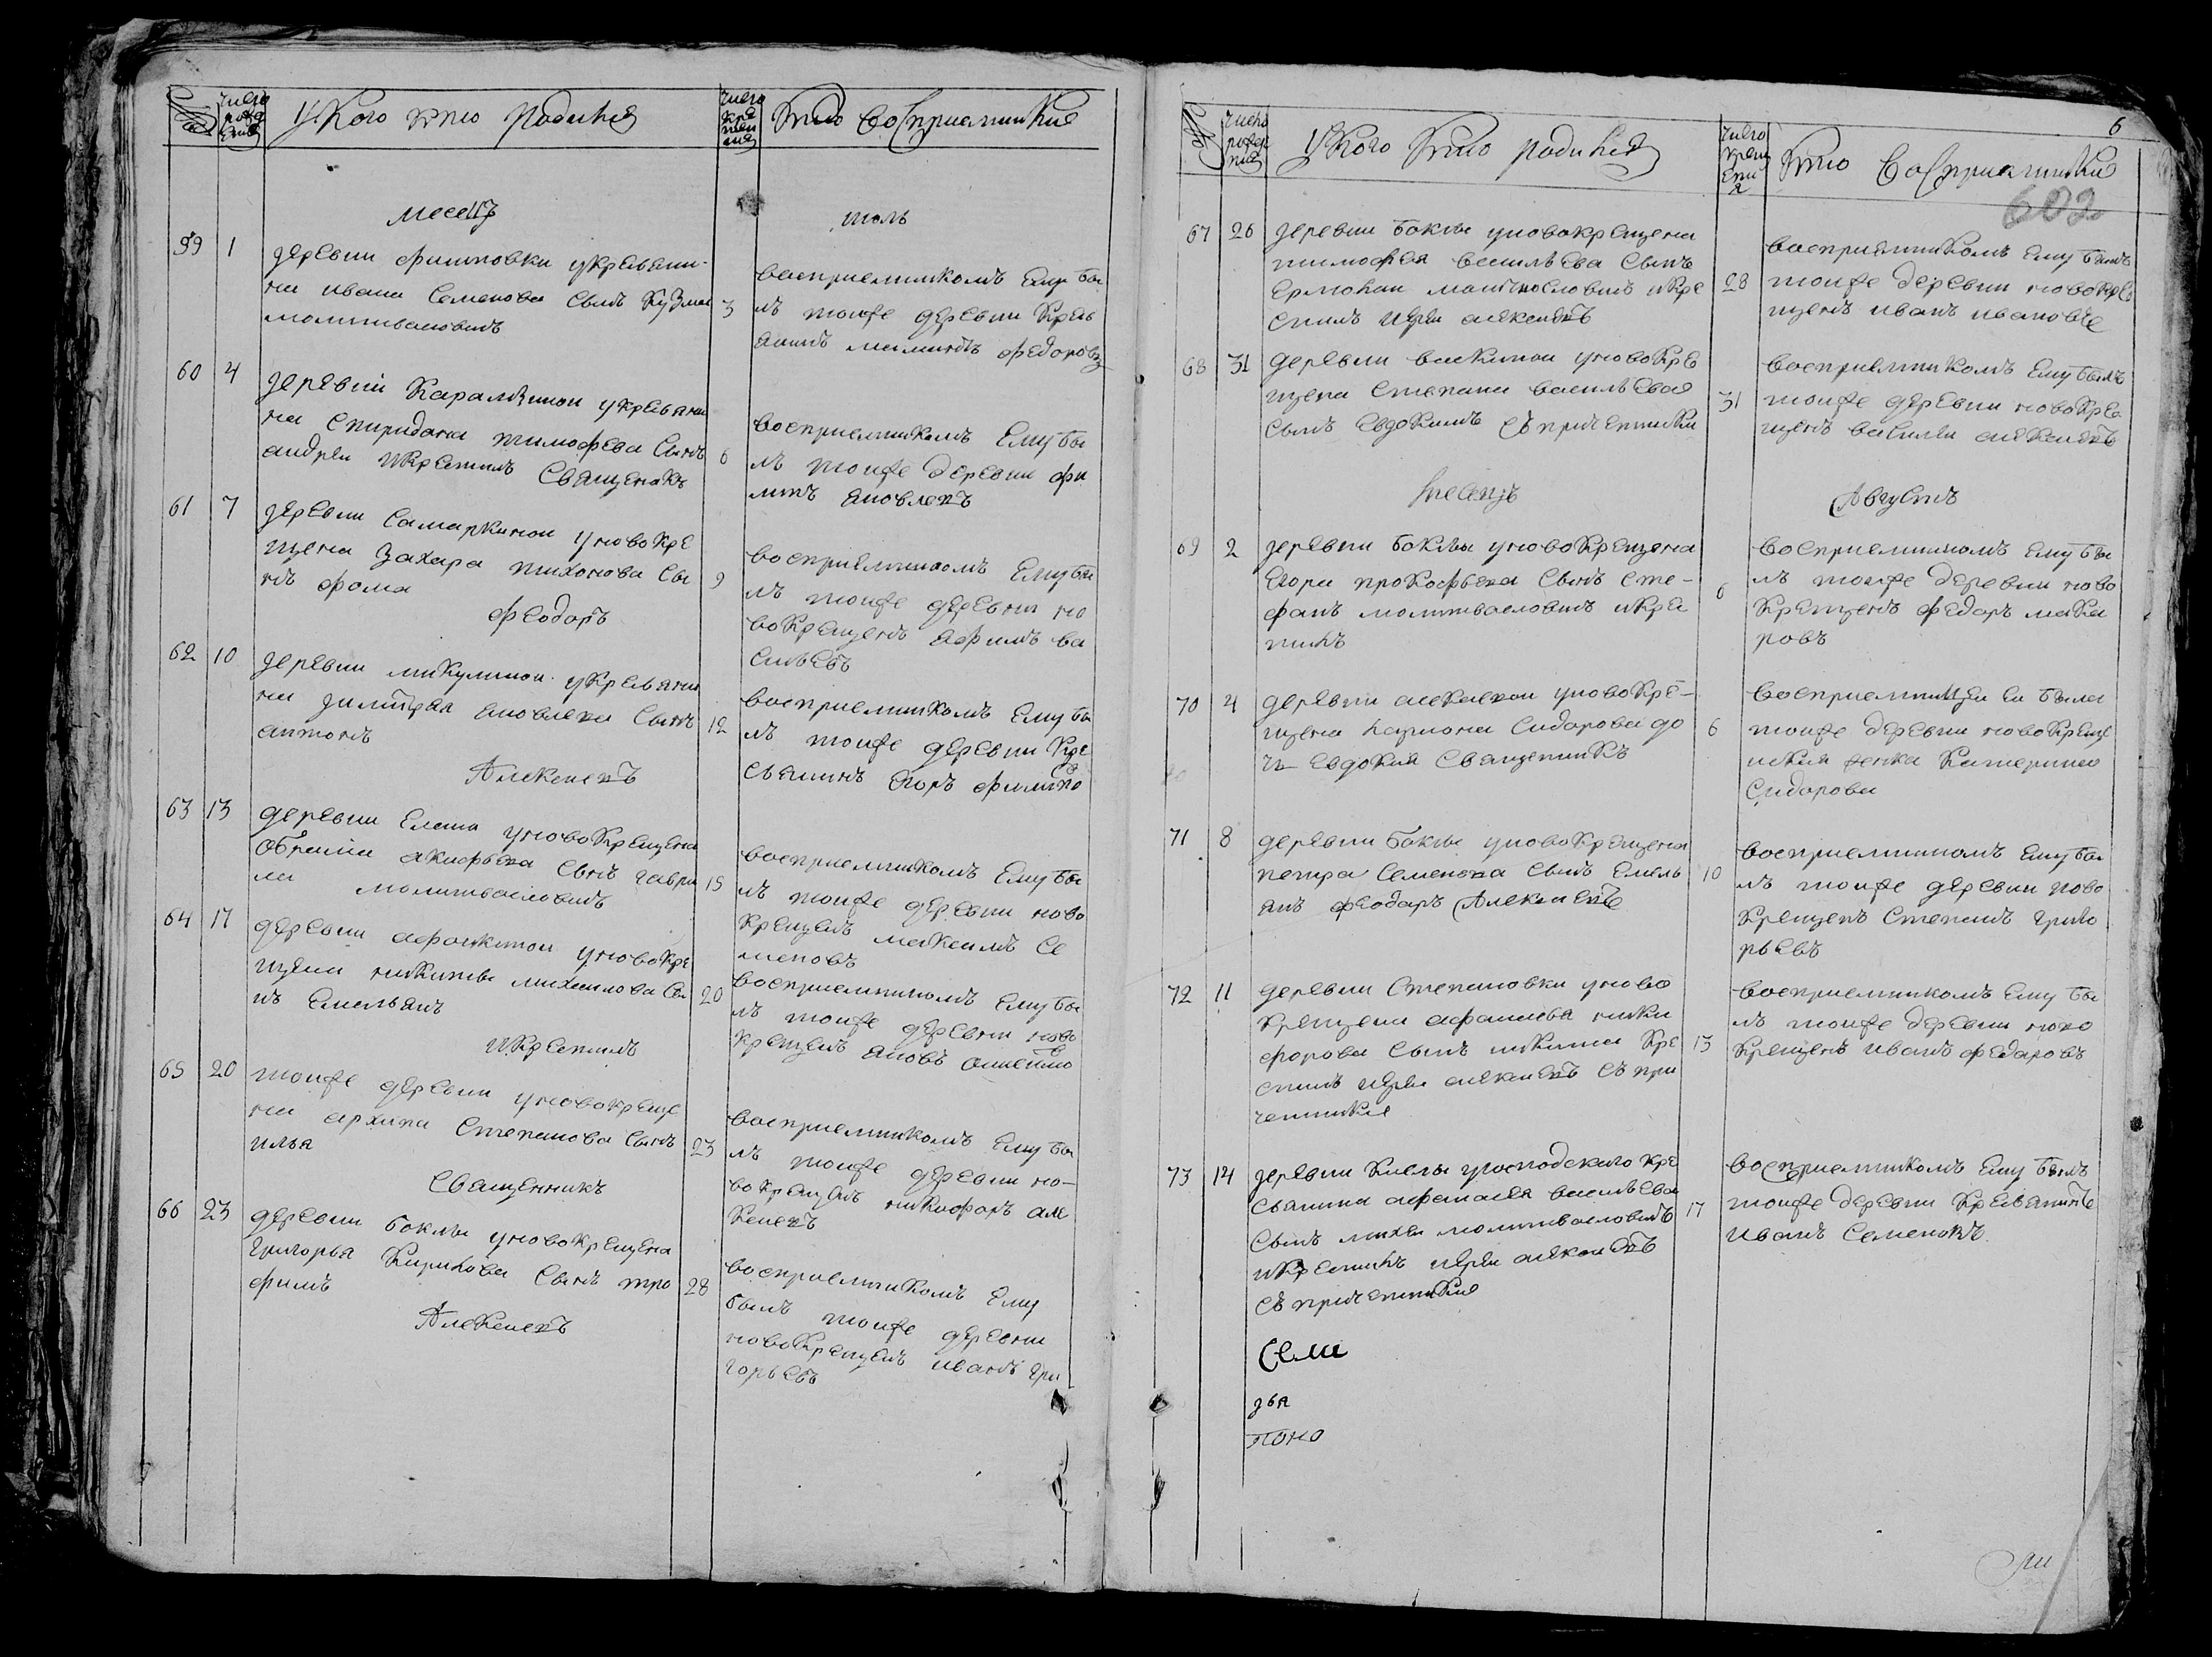 №
число рожде ния
У кого кто родился
число кре щен ия
кто восприемники
месецъ
июль
59 1 деревни филиповки укрестьяни-
на ивана семенова сынъ кузма
молитвасловилъ
3 восприемникомъ ему бы
лъ тоиже деревни кресть
янинъ никита федоровъ
60 4 деревни карамзинои укрестьяни
на спиридона тимофеева сынъ
андреи икрестилъ
священикъ
6 восприемникомъ ему бы
лъ тоиже деревни фи
липъ яковлевъ
61 7 деревни самаркинои уновокре
щена захара тихонова сы
нъ фома
феодоръ
9 восприемникомъ ему бы
лъ тоиже деревни но
вокрещенъ ефимъ ва
сильевъ
62 10 деревни микулинои укрестьяни
на димитрея яковлева сынъ
антонъ
Алексеевъ
12 восприемникомъ ему бы
лъ тоиже деревни кре
стьянинъ егоръ филипо
63 13 деревни елани уновокрещена
акифьева сынъ гаври
ла молитвасловилъ
15 восприемникомъ ему бы
лъ тоиже деревни ново
крещенъ максимъ се
меновъ
64 17 деревни афонкинои уновокре
щена никиты михаилова сы
нъ емельянъ
икрестилъ
20 восприемникомъ ему бы
лъ тоиже деревни ново
крещенъ яковъ
65 20 тоиже деревни уновокреще
на архипа степанова сынъ
илья
священникъ
23 восприемникомъ ему бы
лъ тоиже деревни но-
вокрещенъ никифоръ але
ксеевъ
66 23 деревни боклы уновокрещена
григорья кирилова сынъ тро
фимъ
Алексеевъ
28 восприемникомъ ему
былъ тоиже деревни
новокрещенъ иванъ гри
горьевъ
6
602
№
число рожде ния
У кого кто родился
число крещ ени я
кто восприемники
67 26 деревни боклы уновокрещена
тимофея васильева сынъ
ермолаи молитвословилъ икре
стилъ иереи алексеевъ
28 восприемникомъ ему былъ
тоиже деревни новокре
щенъ иванъ ивановъ
68 31 деревни васкинои уновокре
щена степана васильева
сынъ евдокимъ съ причетники
31 восприемникомъ ему былъ
тоиже деревни новокре
щенъ василеи алексеевъ
месецъ
Августъ
69 2 деревни боклы уновокрещена
егора прокофьева сынъ сте-
фанъ молитвасловилъ икрес
тилъ
6 восприемникомъ ему бы
лъ тоиже деревни ново
крещенъ федоръ мака
ровъ
70 4 деревни алексеевои уновокре-
щена лариона сидорова до
чь евдокия священникъ
6 восприемницеи еи была
тоиже деревни новокреще
нская девка катерина
сидорова
71 8 деревни боклы уновокрещена
петра семенова сынъ емель
янъ феодоръ Алексеевъ
10 восприемникомъ ему бы
лъ тоиже деревни ново
крещенъ степанъ григо
рьевъ
72 11 деревни степановки уново
крещена афанасья ники
форова сынъ никита кре
стилъ иереи алексеевъ съ при
четники
13 восприемникомъ ему бы
лъ тоиже деревни ново
крещенъ иванъ федоровъ
73 14 деревни клявы угосподскаго кре
стьянина афанасея васильева
сынъ михеи молитвасловилъ
икрестилъ иереи алексеевъ
съ причетники
17 восприемникомъ ему былъ
тоиже деревни крестьянинъ
иванъ семеновъ